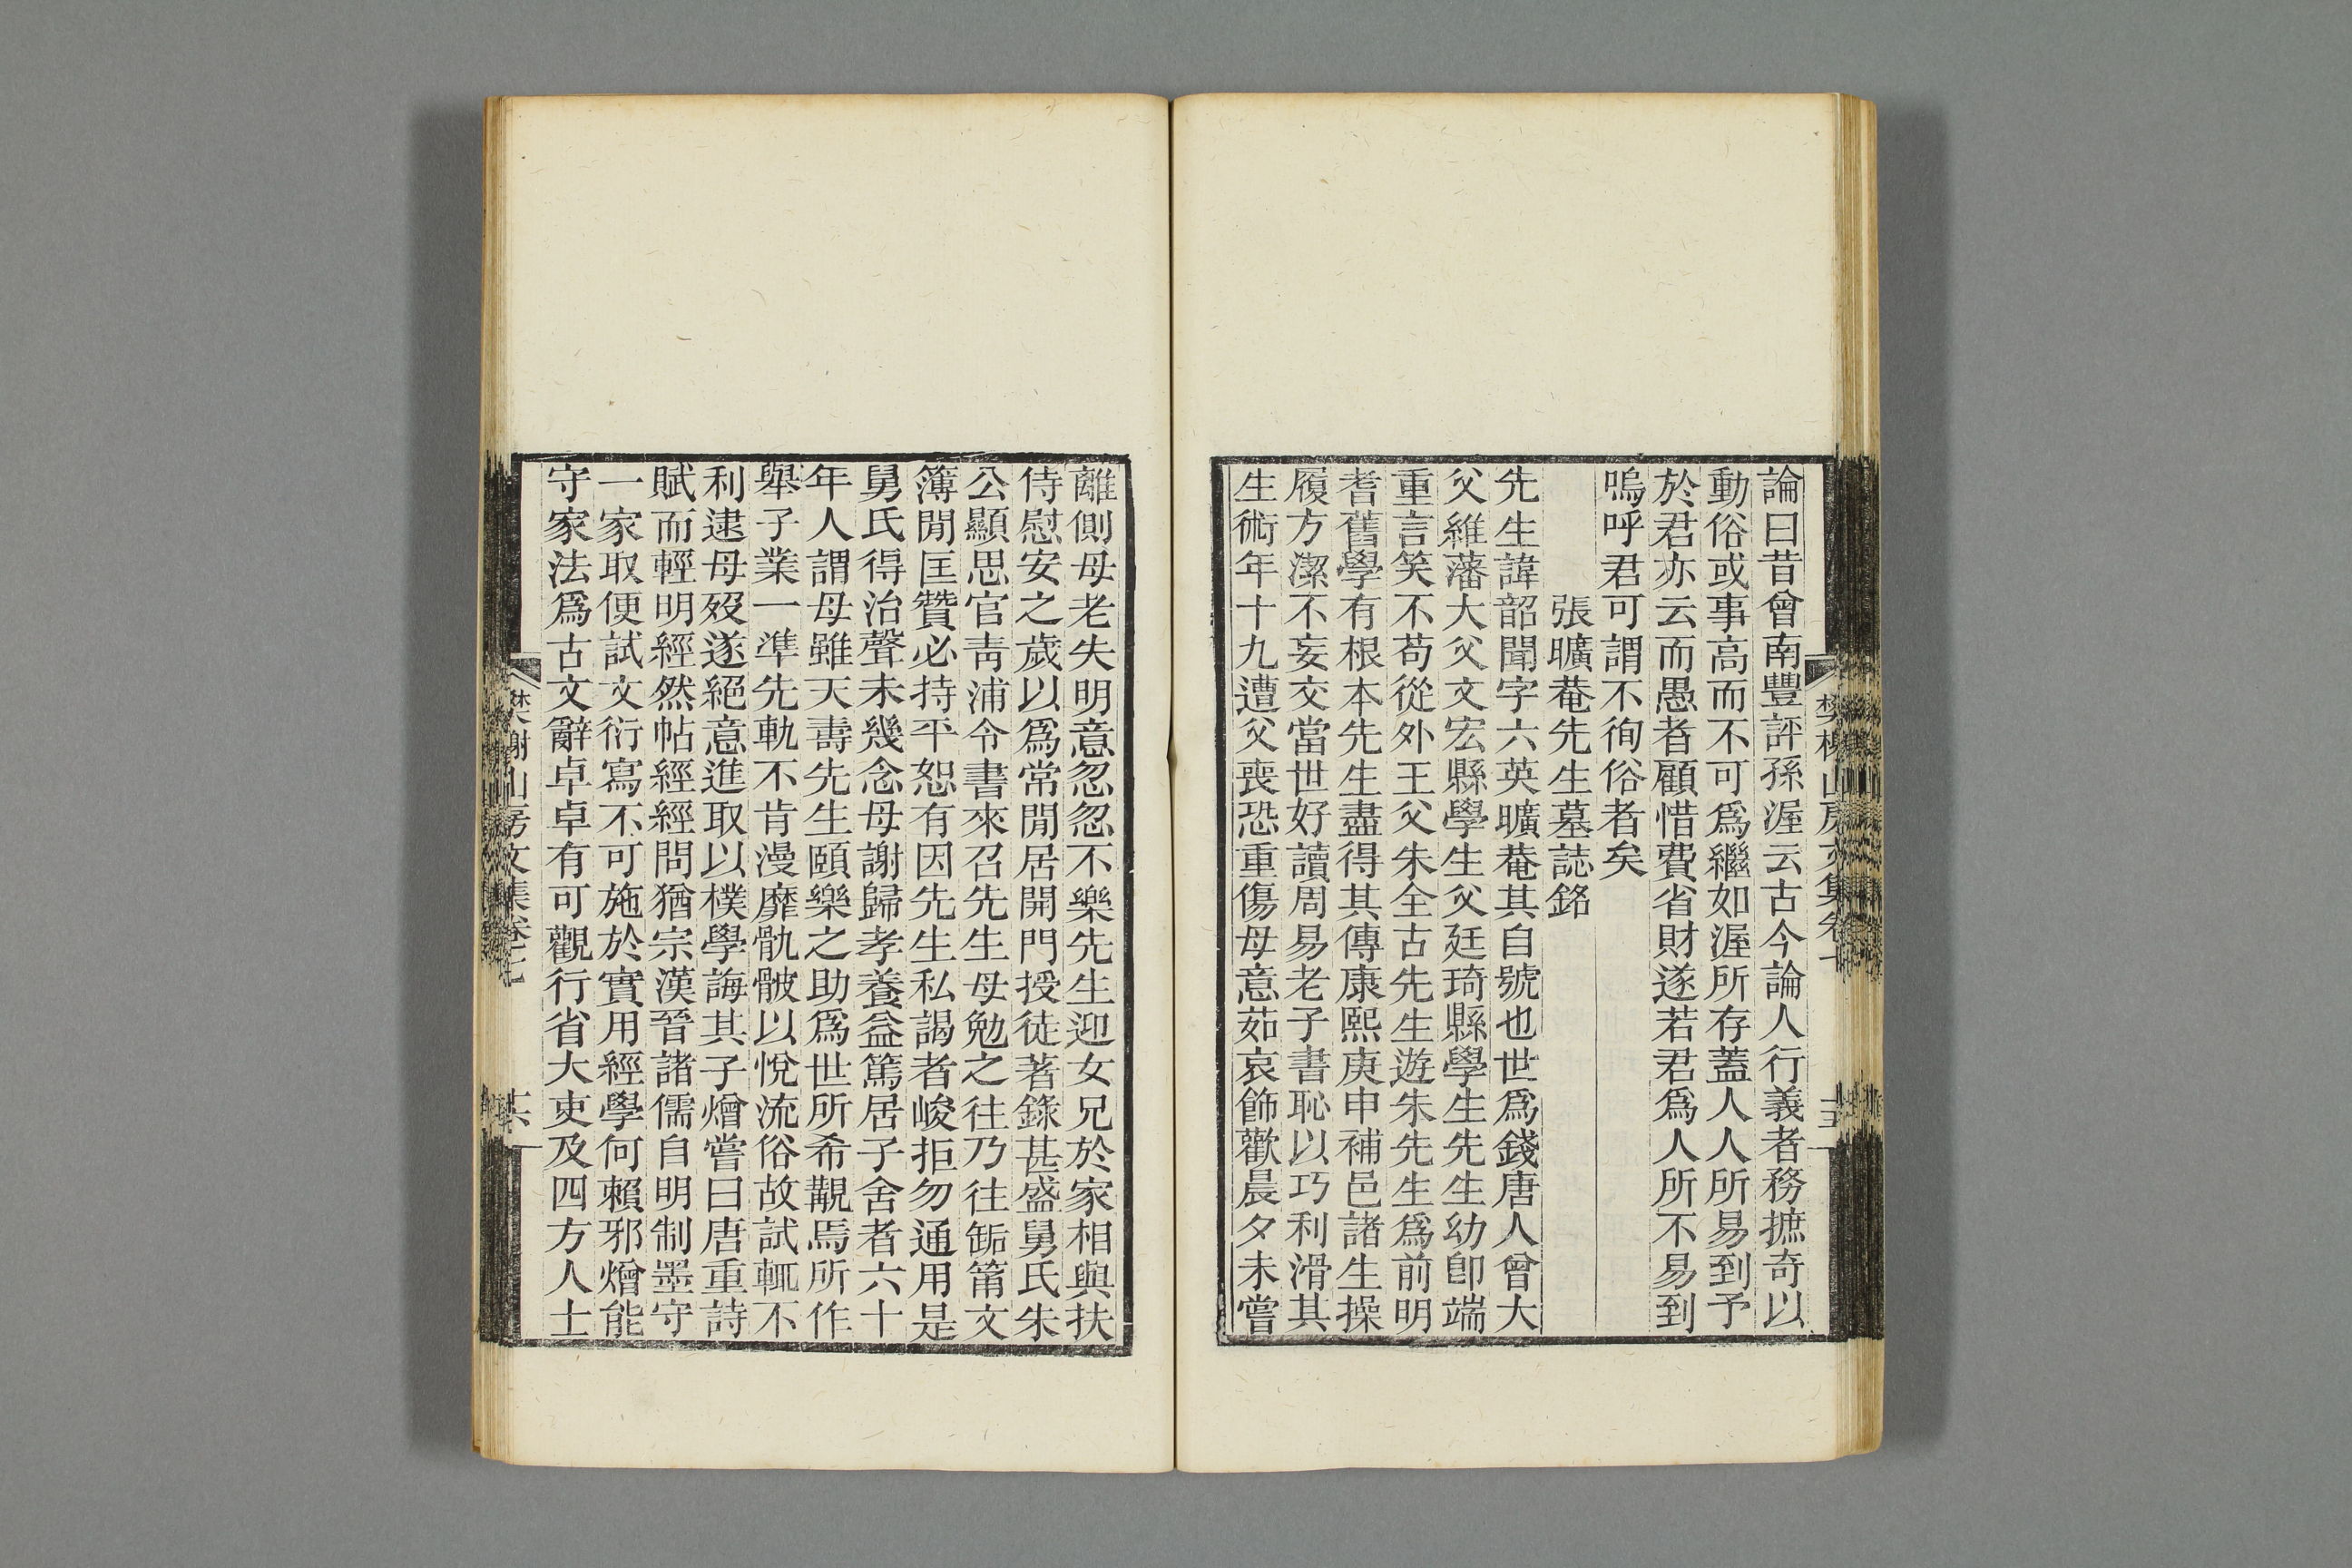 論曰昔曾南豐評孫渥云古今論人行義者務摭奇以
動俗或事高而不可爲繼如渥所存蓋人人所易到予
於君亦云而愚者顧惜費省財遂若君爲人所不易到
嗚呼君可謂不徇俗者矣
張曠菴先生墓誌銘
先生諱韶聞字六英曠菴其自號也世爲錢唐人曾大
父維藩大父文宏縣學生父廷琦縣學生先生幼卽端
重言笑不苟從外王父朱全古先生遊朱先生爲前明
耆舊學有根本先生盡得其傳康熙庚申補邑諸生操
履方潔不妄交當世好讀周易老子書恥以巧利滑其
生術年十九遭父喪恐重傷母意茹哀飾歡晨夕未嘗
離側母老失明意忽忽不樂先生迎女兄於家相與扶
侍慰安之歲以爲常閒居開門授徒著錄甚盛舅氏朱
公顯思官靑浦令書來召先生母勉之往乃往缿筩文
簿閒匡贊必持平恕有因先生私謁者峻拒勿通用是
舅氏得治聲未幾念母謝歸孝養益篤居子舍者六十
年人謂母雖天壽先生頤樂之助爲世所希覯焉所作
舉子業一準先軌不肯漫靡骩骳以悅流俗故試輒不
利逮母歿遂絕意進取以樸學誨其子熷嘗曰唐重詩
賦而輕明經然帖經經問猶宗漢晉諸儒自明制墨守
一家取便試文衍寫不可施於實用經學何賴邪熷能
守家法爲古文辭卓卓有可觀行省大吏及四方人士
樊榭山房文集卷七
十六